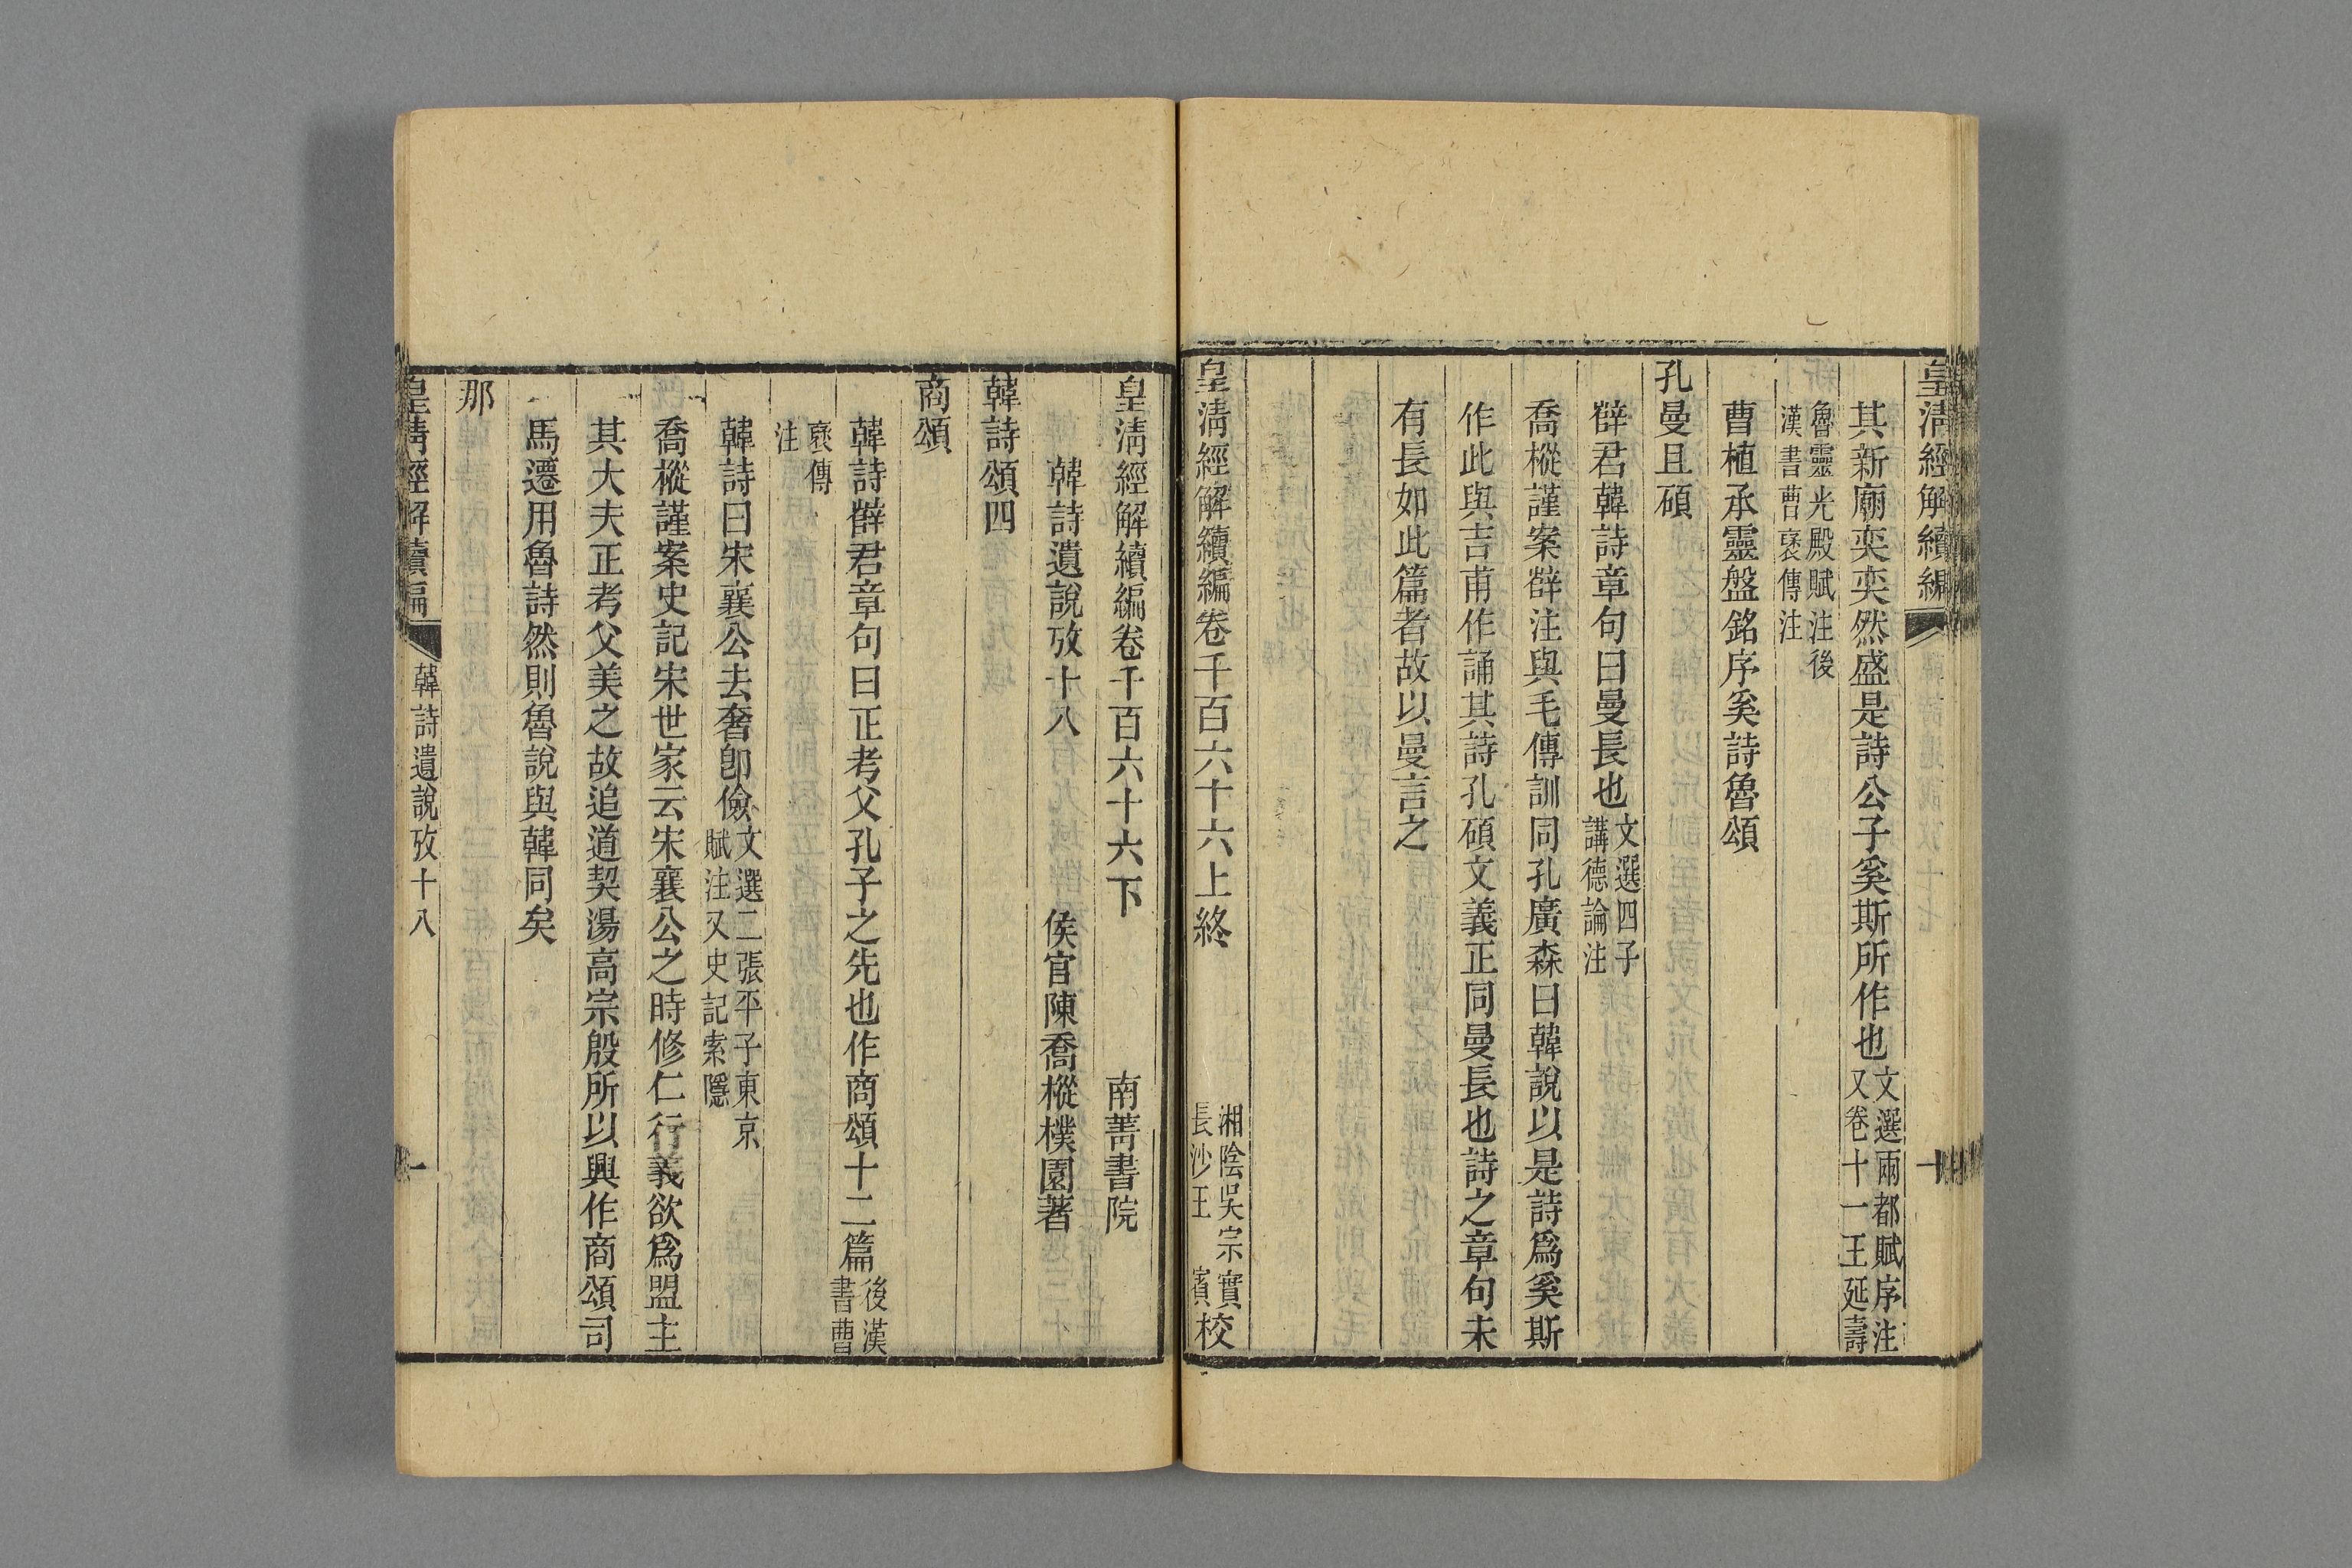 皇清經解續編
十
其新廟奕奕然盛是詩公子奚斯所作也文選兩都賦序注又卷十一王延壽
魯靈光殿賦注後漢書曹褒傳注
曹植承靈盤銘序奚詩魯頌
孔曼且碩
薛君韓詩章句曰曼長也文選四子講德論注
喬樅謹案薛注與毛傳訓同孔廣森曰韓說以是詩爲奚斯
作此與吉甫作誦其詩孔碩文義正同曼長也詩之章句未
有長如此篇者故以曼言之
皇清經解續編卷千百六十六上終
湘陰吳宗實長沙王賓校
皇清經解續編卷千百六十六下
南菁書院
韓詩遺說攷十八
侯官陳喬樅樸園著
韓詩頌四
商頌
韓詩薛君章句曰正考父孔子之先也作商頌十二篇後漢書曹
褒傳注
韓詩曰宋襄公去奢卽儉文選二張平子東京賦注又史記索隱
喬樅謹案史記宋世家云宋襄公之時修仁行義欲爲盟主
其大夫正考父美之故追道契湯高宗殷所以興作商頌司
馬遷用魯詩然則魯說與韓同矣
那
皇清經解續編
韓詩遺說攷十八
一